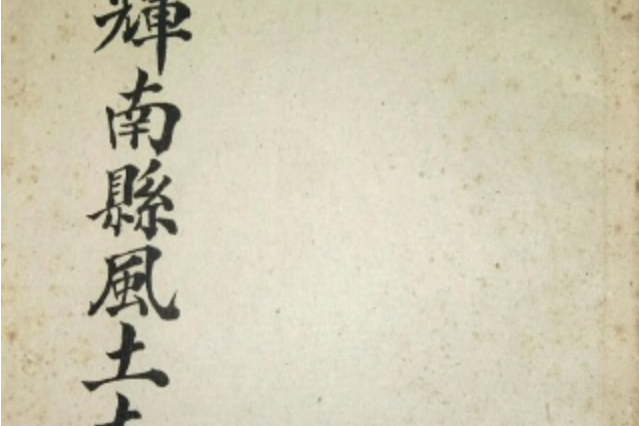 輝南縣風土